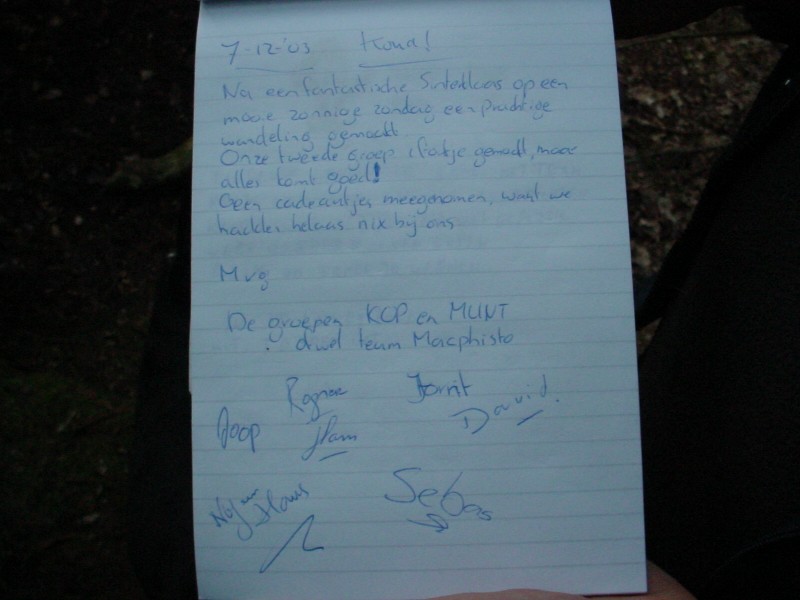 7-12-'03 Koud!
Na een fantastische Sinterklaas op een
mooie zonnige zondag een prachtige
wandeling gemaakt
Onze tweede groep foutje gemaakt, maar
alles komt goed!
Geen cadeautjes meegenomen, want we
hadden helaas nix bij ons
Mvg
De groepen KOP en MUNT
ofwel team Macphisto
Rogier Jorrit
Joop Ham David.
Hans
Sebas